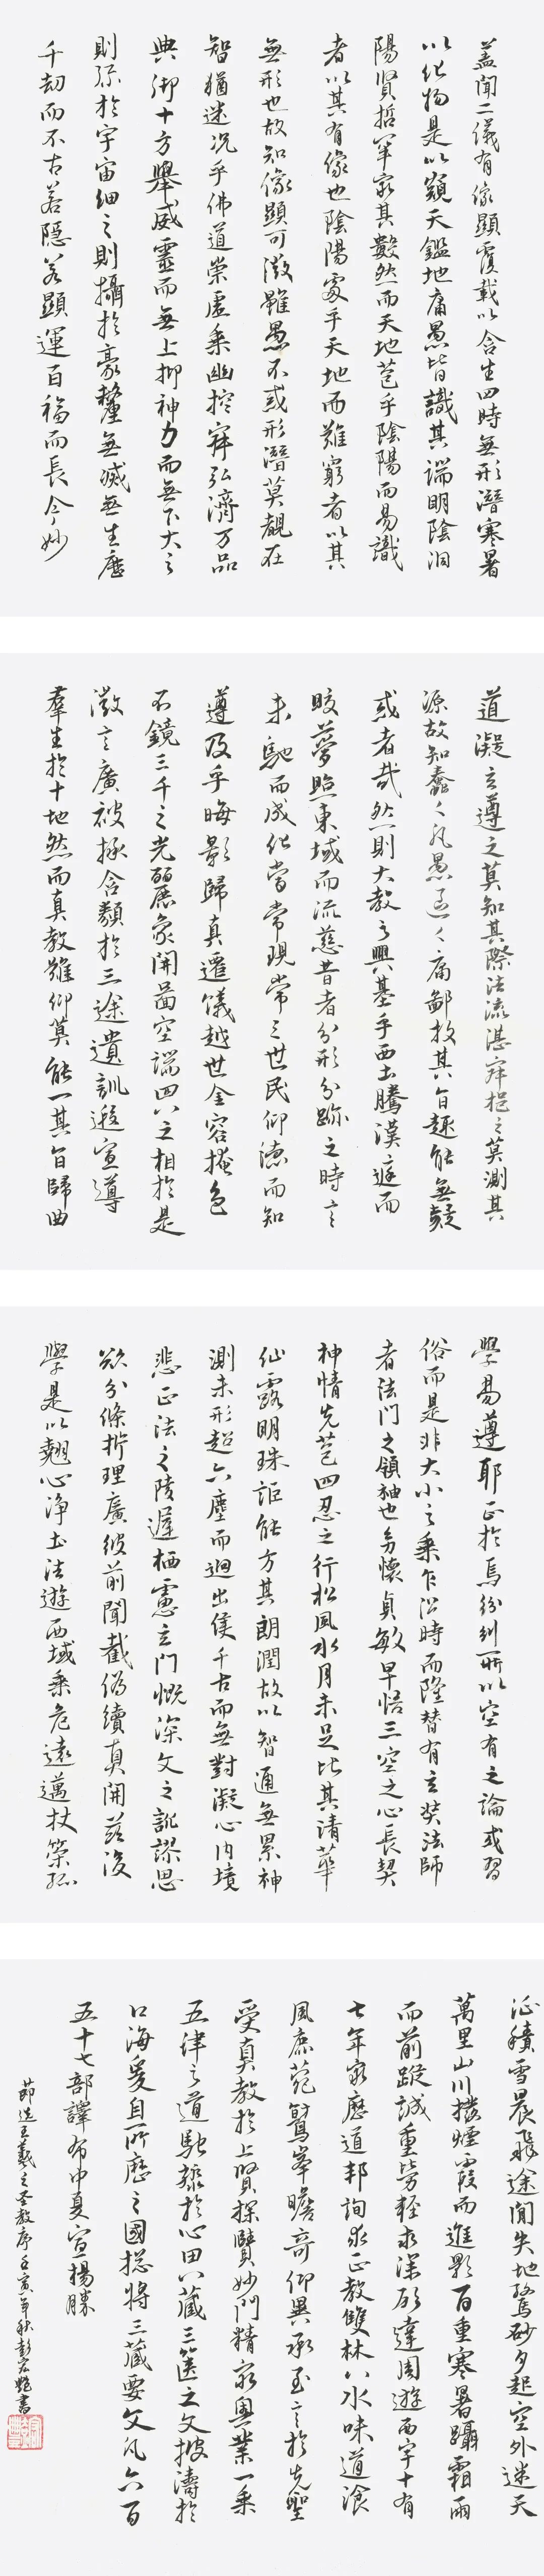 蓋聞二儀有像顯覆載以含生四時無形潛寒暑
以化物是以窺天鑑地庸愚皆識其端明陰洞
陽賢哲罕窮其數然而天地苞乎陰陽而易識
者以其有像也陰陽處乎天地而難窮者以其
無形也故知像顯可徵雖愚不惑形潛莫覩在
智猶迷况乎佛道崇虛乘幽控寂弘濟万品
典御十方舉威靈而無上抑神力而無下大之
則弥於宇宙細之則攝於豪釐無滅無生歷
千劫而不古若隱若顯運百福而長今妙
道凝玄遵之莫知其際法流湛寂挹之莫測其
源故知蠢々凡愚區々庸鄙投其旨趣能無疑
惑者哉然則大教之興基乎西土騰漢庭而
皎夢照東域而流慈昔者分形分跡之時言
未馳而成化當常現常之世民仰德而知
遵及乎晦影歸真遷儀越世金容掩色
不鏡三千之光麗象開圖空端四八之相於是
微言廣被拯含類於三途遺訓遐宣導
羣生於十地然而真教難仰莫能一其旨歸曲
學易遵耶正於焉紛糾所以空有之論或習
俗而是非大小之乘乍沿時而隆替有玄奘法師
者法門之領袖也幼懷貞敏早悟三空之心長契
神情先苞四忍之行松風水月未足比其清華
仙露明珠詎能方其朗潤故以智通無累神
測未形超六塵而迥出隻千古而無對凝心內境
悲正法之陵遲栖慮玄門慨深文之訛謬思
欲分條析理廣彼前聞截偽續真開茲後
學是以翹心淨土法遊西域乘危遠邁杖策孤
征積雪晨飛途間失地驚砂夕起空外迷天
萬里山川撥煙霞而進影百重寒暑躡霜雨
而前蹤誠重勞輕求深願達周遊西宇十有
七年窮歷道邦詢求正教雙林八水味道湌
風鹿菀鷲峯瞻奇仰異承至言於先聖
受真教於上賢探賾妙門精窮奧業一乘
五律之道馳驟於心田八藏三篋之文披濤於
口海爰自所歷之國揔將三藏要文凡六百
五十七部譯布中夏宣揚勝
節選王羲之圣教序壬寅年秋彭宏艷書